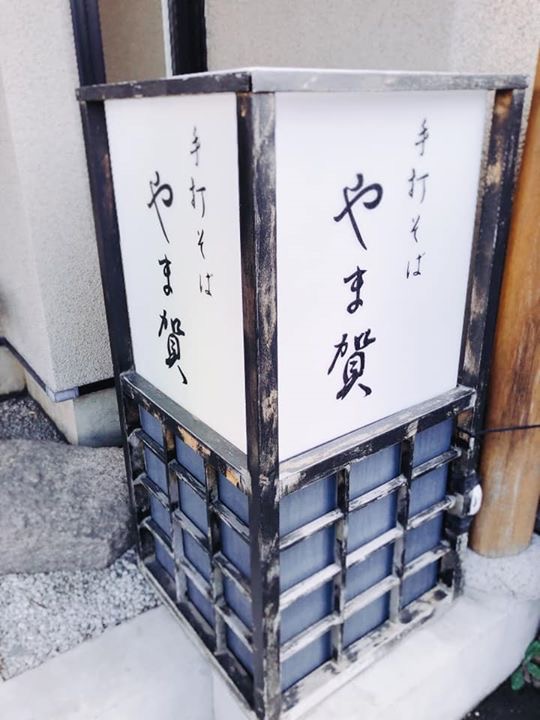 手打そば
やま賀
手打そば
やま賀